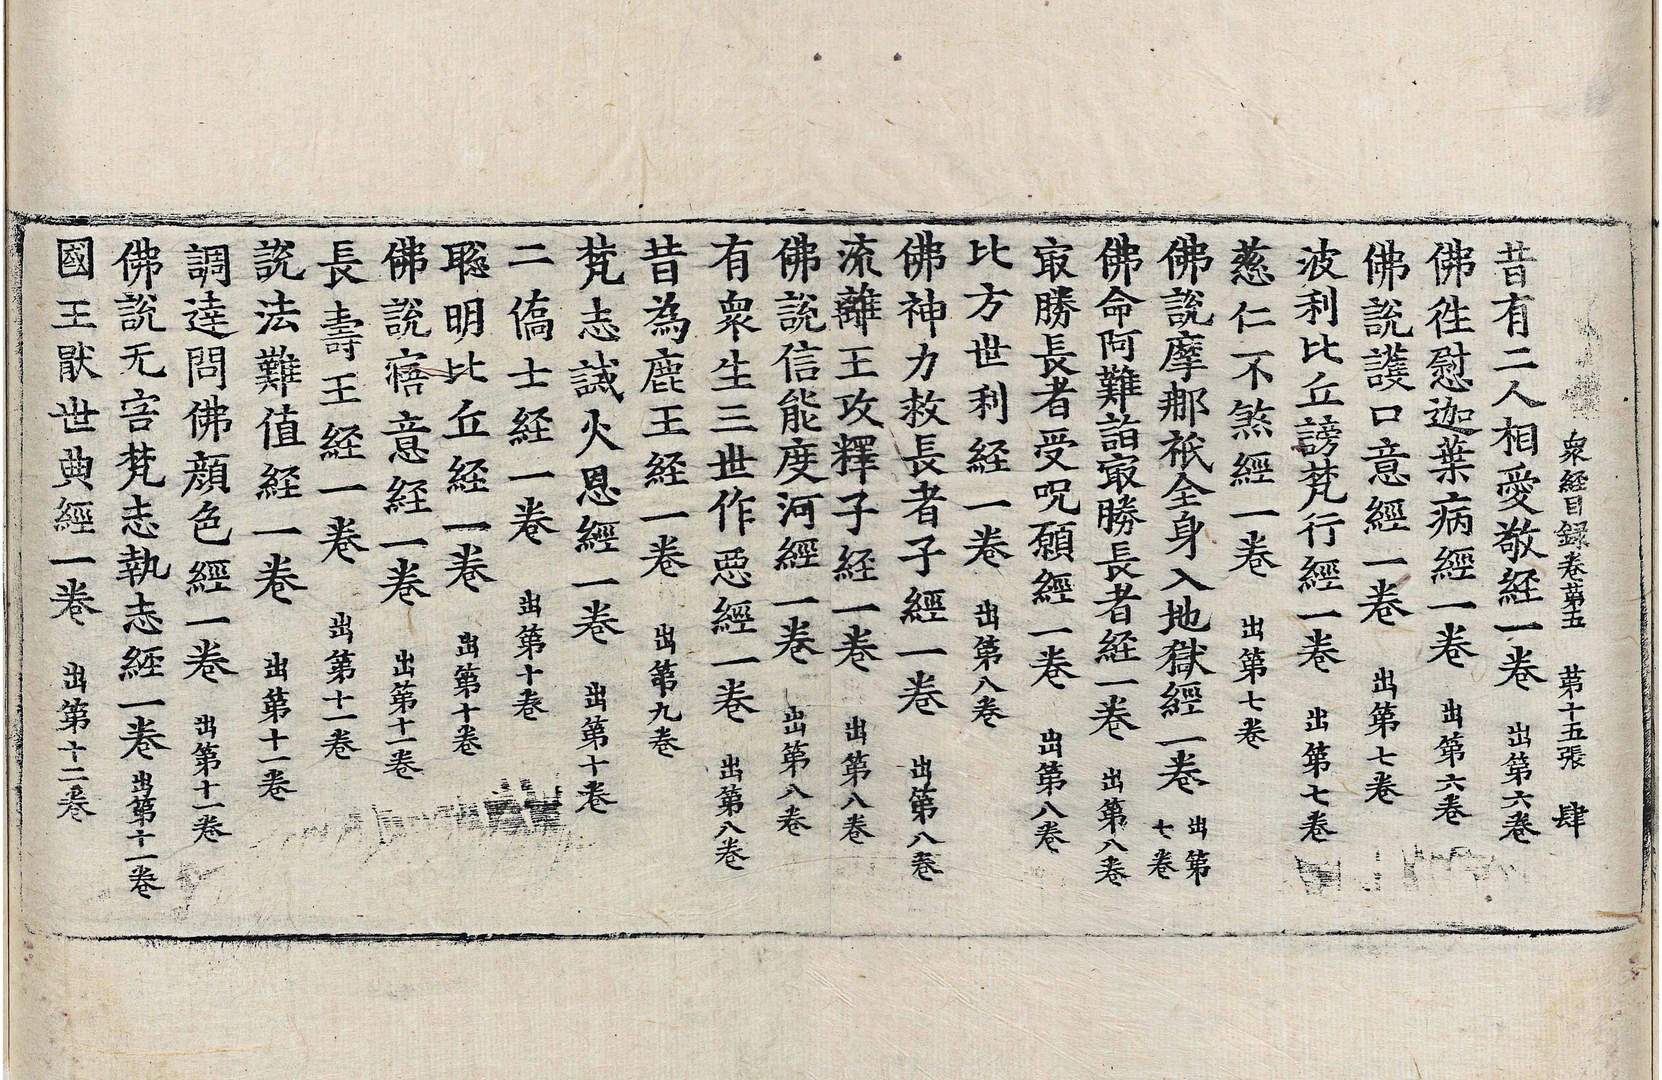 衆經目録卷苐五　苐十五張　肆
昔有二人相愛敬経一卷　出第六卷
佛徃慰迦葉病經一卷　出第六卷
佛説護口意經一卷　出第七卷
波利比丘謗梵行經一卷　出第七卷
慈仁不煞經一卷　出第七卷
佛説摩那祇全身入地獄經一卷　出第七卷
佛命阿難詣㝡勝長者経一卷　出第八卷
㝡勝長者受呪願經一卷　出第八卷
比方世利経一卷　出第八卷
佛神力救長者子經一卷　出第八卷
流離王攻釋子経一卷　出第八卷
佛説信能度河經一卷　出第八卷
有衆生三世作惡經一卷　出第八卷
昔為鹿王経一卷　出第九卷
梵志誡火恩經一卷　出第十卷
二僑士経一卷　出第十卷
聡明比丘経一卷　出第十卷
佛説寤意經一卷　出第十一卷
長壽王経一卷　出第十一卷
説法難值経一卷　出第十一卷
調達問佛顔色經一卷　出第十一卷
佛説无害梵志執志經一卷　出第十一卷
國王猒世典經一卷　出第十二卷